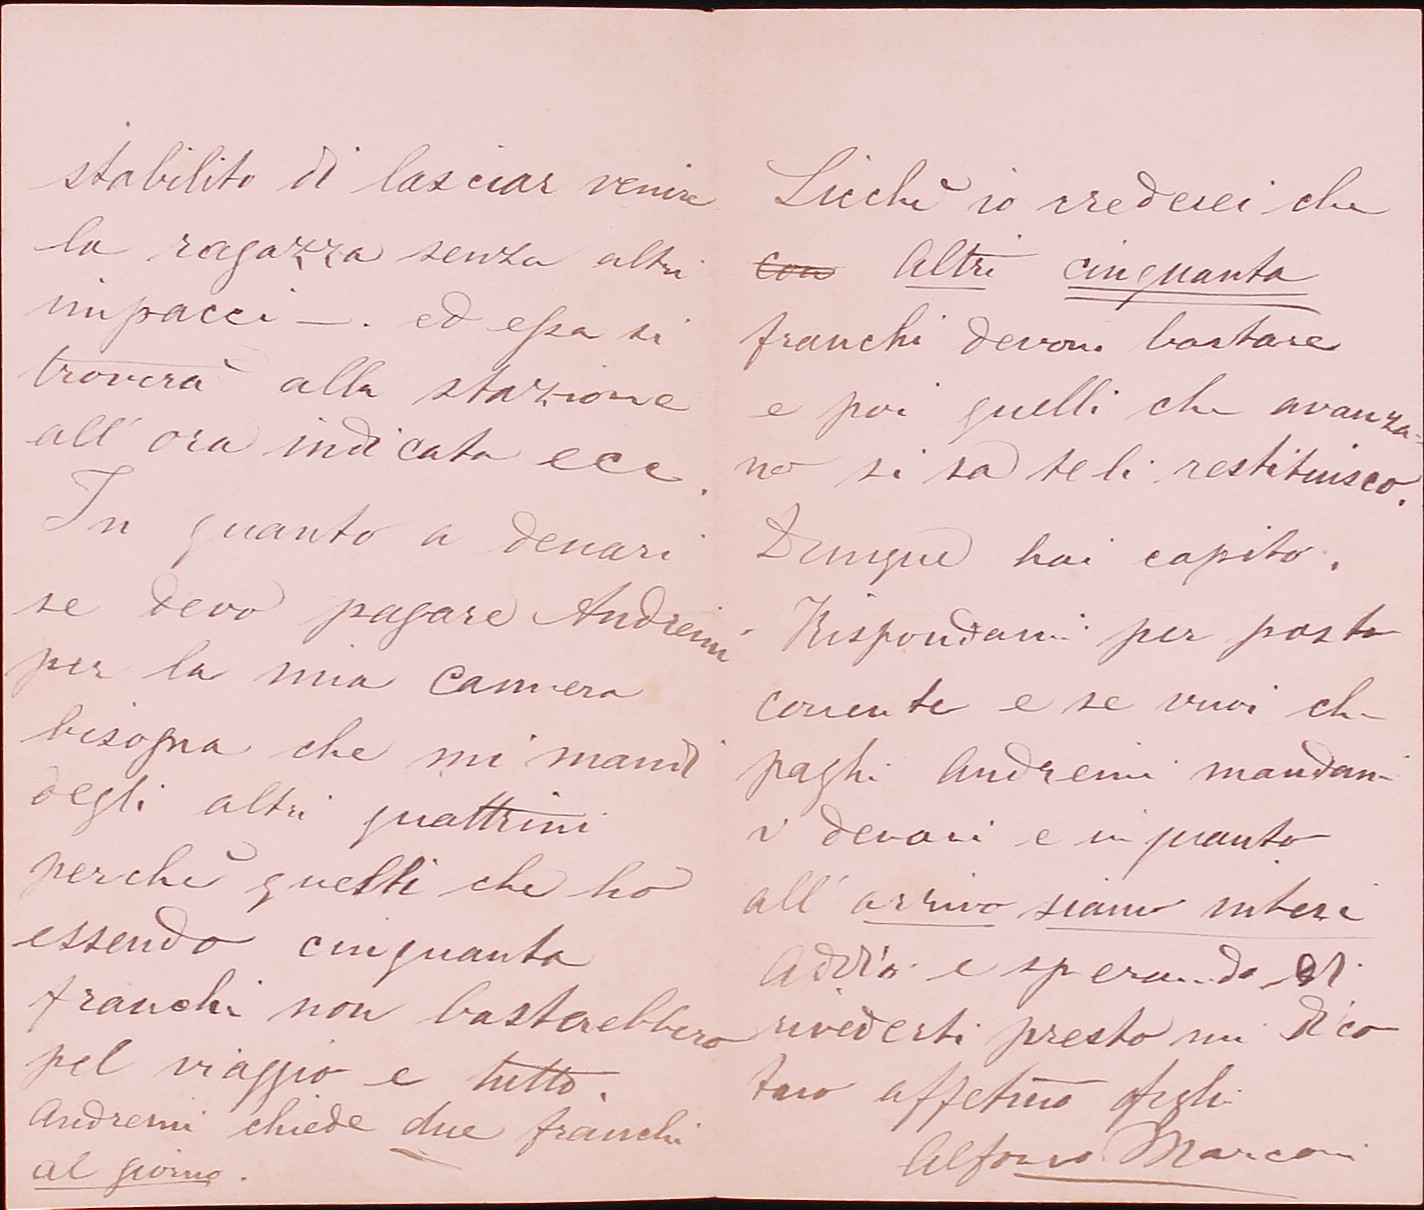 stabilito di lasciar venire
la ragazza senza altri
impacci —. ed essa si
troverà alla stazione
all'ora indicata ecc.
In quanto a denari
se devo pagare Andreini
per la mia camera
bisogna che mi mandi
degli altri quattrini
perchè quelli che ho
essendo cinquanta
franchi non basterebbero
pel viaggio e tutto.
Andreini chiede due franchi
al giorno.
Sicchè io crederei che
con altri cinquanta
franchi devono bastare
e poi quelli che avanza-
no si sa te li restituisco.
Dunque hai capito.
Rispondami per posta
corrente e se vuoi che
paghi Andreini mandami
i denari e in quanto
all'arrivo siamo intesi
Addio e sperando di
rivederti presto mi dico
tuo affetmo figlio
Alfonso Marconi